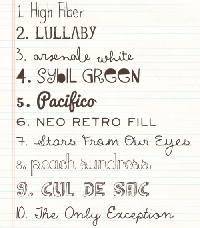 1. High Fiber
2. LULLABY
3. arsenale white
4. SYBIL GREEN
5. Pacifico
6. NEO RETRO FILL
7. Stars From Our Eyes
8. peach sundress
9. CUL DE SAC
10. The Only Exception